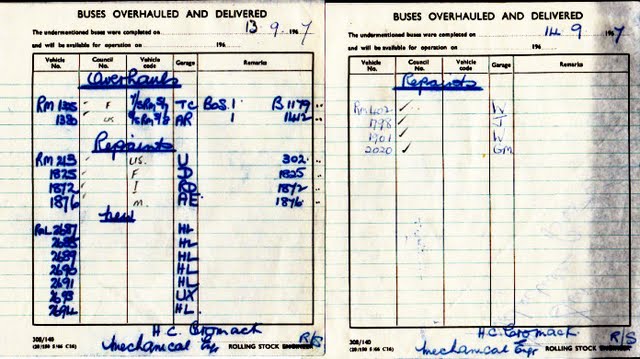 BUSES OVERHAULED AND DELIVERED
13 . 9 . 1967
The undermentioned buses were completed on
and will be available for operation on 196
Vehicle No. Council No. Vehicle code Garage Remarks
Overhauls
F TC BoS. 1 B1179
1380 US AR 1 1412
Repaints
RM 213 US. U 302
1825 F D 1825
1872 I RD 1872
1876 m. AE 1876
New
RML 2687 HL
2688 HL
2689 HL
2690 HL
2691 HL
2693 UX
2694 HL.
H.C. Cromack
Mechanical Egr R/S
308/140
ROLLING STOCK ENGINEER
BUSES OVERHAULED AND DELIVERED
14 9 1967
The undermentioned buses were completed on
and will be available for operation on 196
Vehicle No. Council No. Vehicle code Garage Remarks
Repaints
RM 602 ✓ W
1798 ✓ J
1901 ✓ W
2020 ✓ GM
H.C. Cromack
Mechanical Egr R/S
308/140
ROLLING STOCK ENGINEER